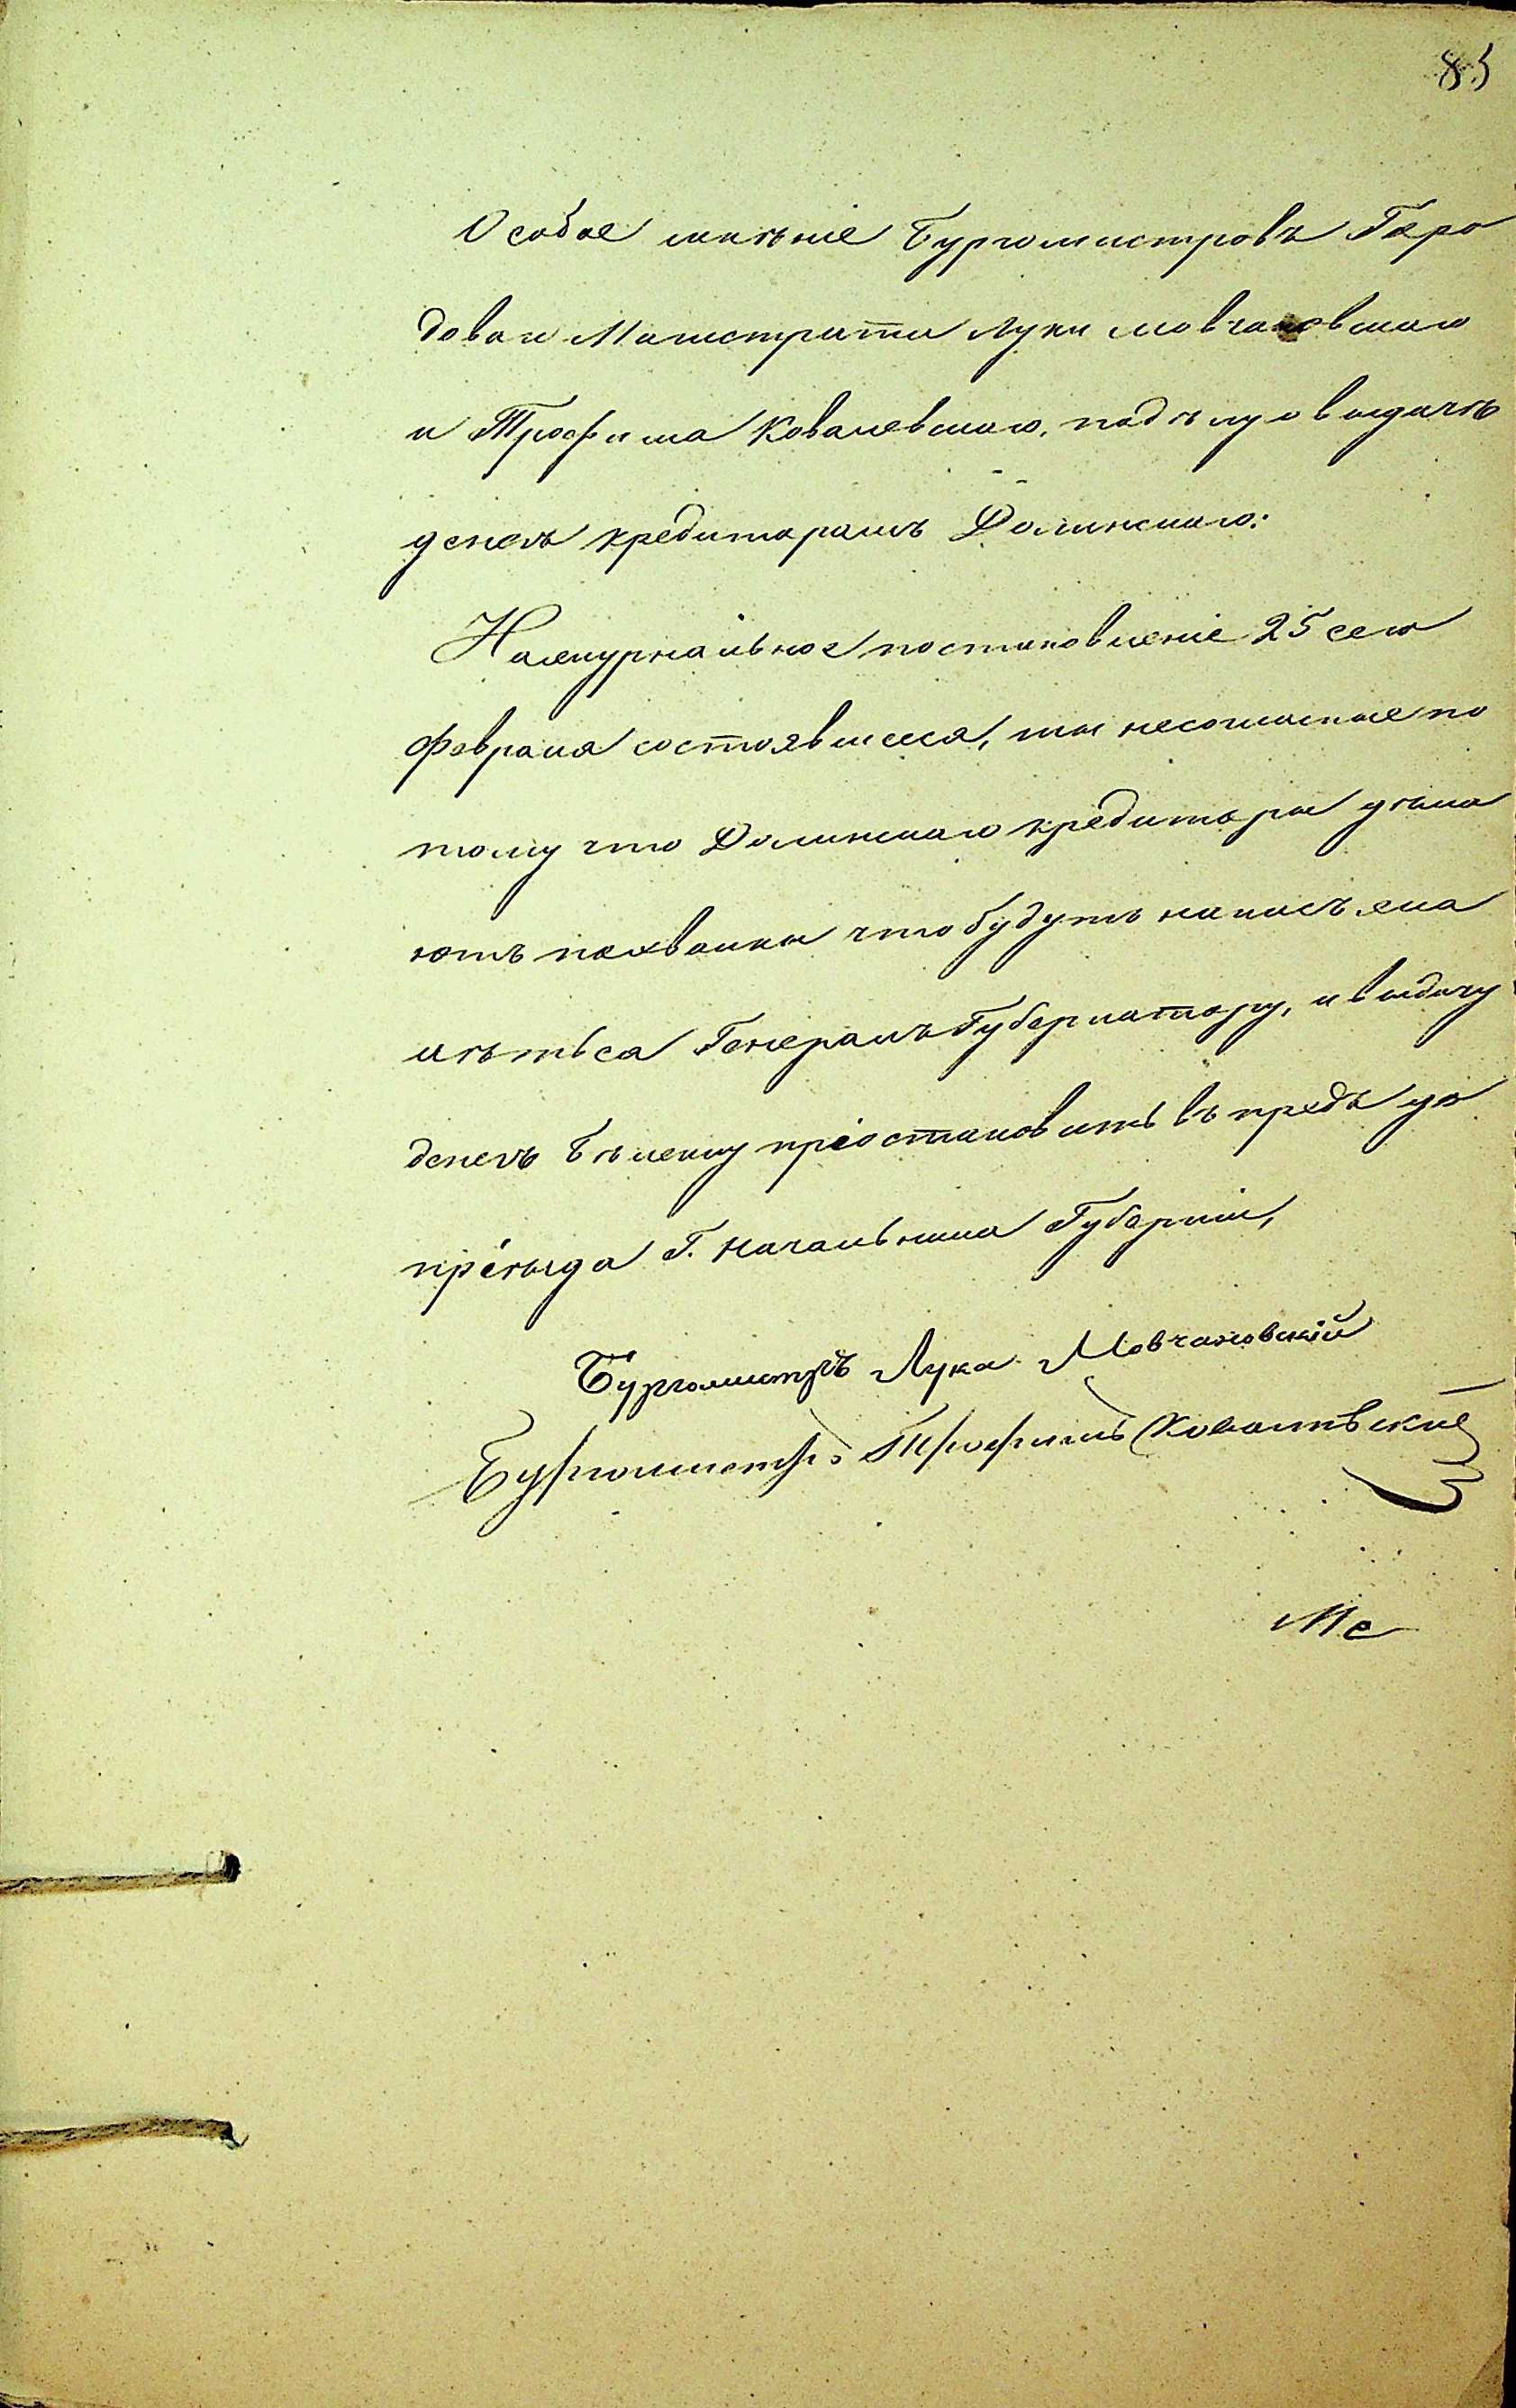 85
Особое мнѣніе Бургомистровъ Горо
доваго Магистрата Луки Мовчановскаго
и Трофима Ковалевскаго, по дѣлу о выдачѣ
денегъ кредиторамъ Долинскаго:
На журнальное постановленіе 25 сего
февраля состоявшееся, мы несогласные по
тому что Долинскаго кредиторы дѣла
ютъ похвалки что будутъ на насъ жа
литься Генералъ Губернатору, и выдачу
денегъ пріостановить въ предь до
пріезда Г. Начальника Губерніи,
Бургомистръ Лука Мовчановскій
Бургомистръ Трофимъ Ковалевскій